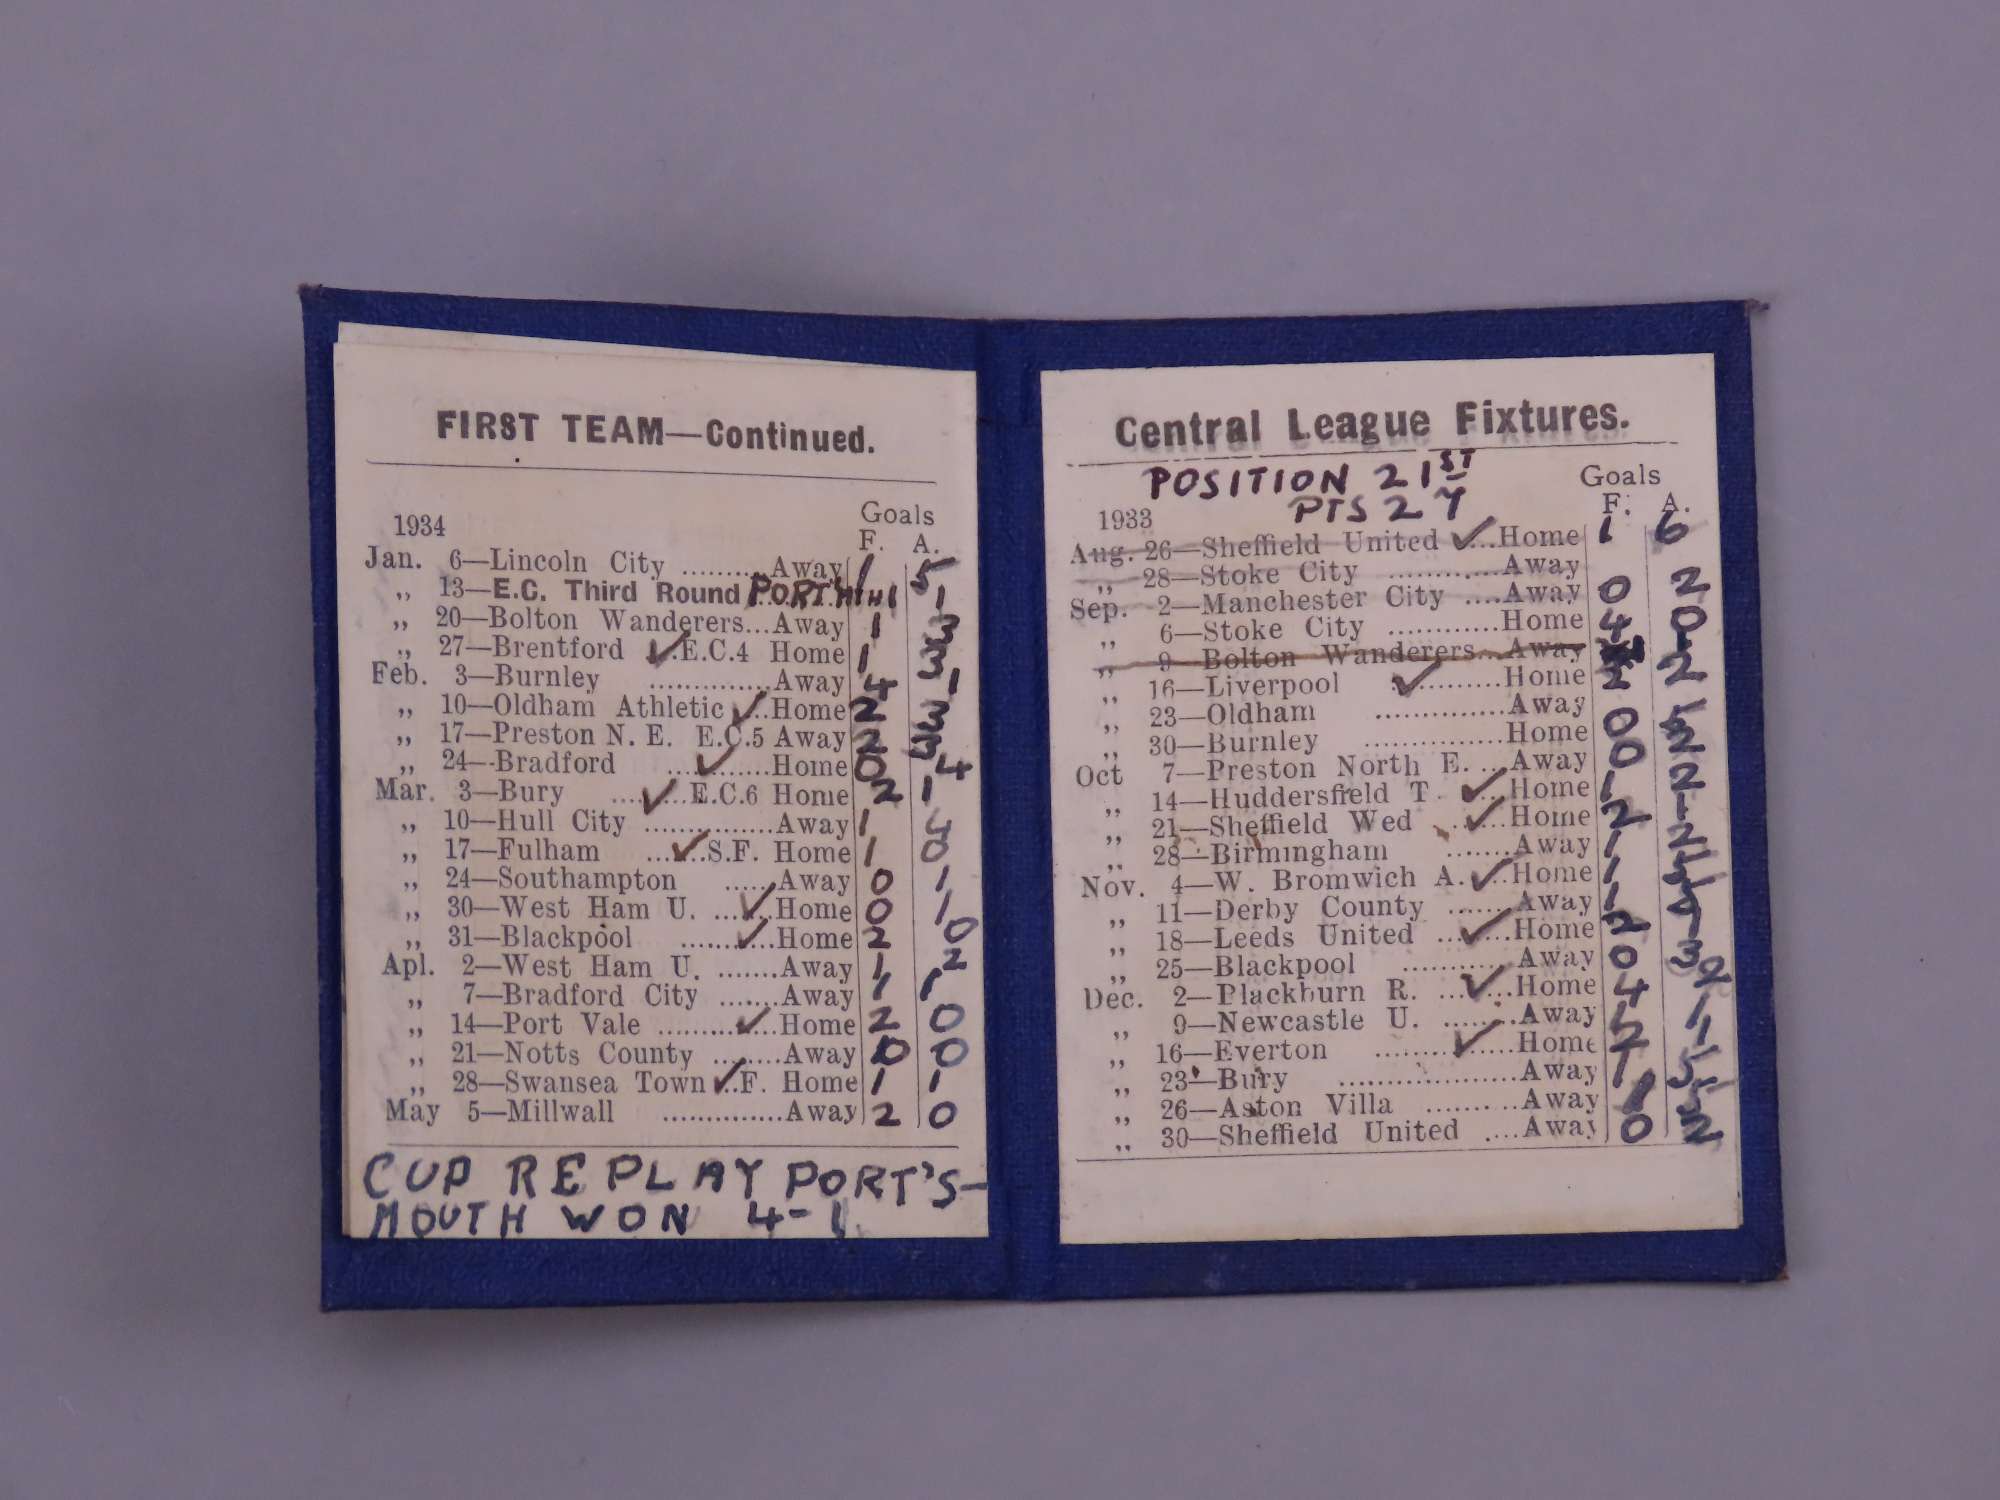 FIRST TEAM—Continued.
Goals
1934 F. A.
Jan. 6—Lincoln City ..........Away 1 5
„ 13—E.C. Third Round PORT'H H 1 1
„ 20—Bolton Wanderers...Away 1 3
„ 27—Brentford ✓.E.C.4 Home 1 3
Feb. 3—Burnley ..............Away 4 1
„ 10—Oldham Athletic ✓..Home 2 3
„ 17—Preston N. E. E.C.5 Away 2 3
„ 24—Bradford ....✓.......Home 0 4
Mar. 3—Bury ....✓...E.C.6 Home 2 1
„ 10—Hull City ...............Away 1 4
„ 17—Fulham ...✓..S.F. Home 1 0
„ 24—Southampton ......Away 0 1
„ 30—West Ham U. ...✓.Home 0 1
„ 31—Blackpool .......✓..Home 2 0
Apl. 2—West Ham U. .......Away 1 2
„ 7—Bradford City .......Away 1 1
„ 14—Port Vale .........✓..Home 2 0
„ 21—Notts County ........Away 0 0
„ 28—Swansea Town ✓..F. Home 1 1
May 5—Millwall ..............Away 2 0
CUP REPLAY PORT'S-
MOUTH WON 4-1
Central League Fixtures.
POSITION 21ST Goals
PTS 27 F. A.
1933
Aug. 26—Sheffield United ✓...Home 1 6
„ 28—Stoke City .............Away
Sep. 2—Manchester City ....Away 0 2
„ 6—Stoke City ............Home 4 0
„ 9—Bolton Wanderers...Away
„ 16—Liverpool ✓..........Home 2 2
„ 23—Oldham ...............Away
„ 30—Burnley ................Home 0
Oct 7—Preston North E. ...Away 0 2
„ 14—Huddersfield T. ✓..Home 1 2
„ 21—Sheffield Wed ..✓..Home 2 1
„ 28—Birmingham .......Away 1 2
Nov. 4—W. Bromwich A.✓..Home 1
„ 11—Derby County .......Away 1
„ 18—Leeds United ...✓...Home 2
„ 25—Blackpool ............Away 0 3
Dec. 2—Blackburn R. ...✓...Home 4 2
„ 9—Newcastle U. ........Away 1 1
„ 16—Everton ........✓.....Home 2 1
„ 23—Bury ....................Away 1 5
„ 26—Aston Villa ..........Away 1 5
„ 30—Sheffield United ....Away 0 2